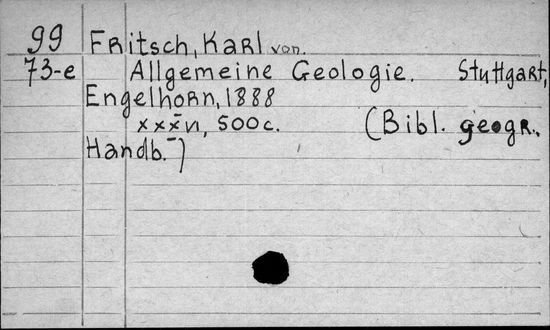 99 Fritsch, Karl von.
73-e Allgemeine Geologie. Stuttgart,
Engelhorn, 1888
500 c. (Bibl. geogr.
Handb.-)